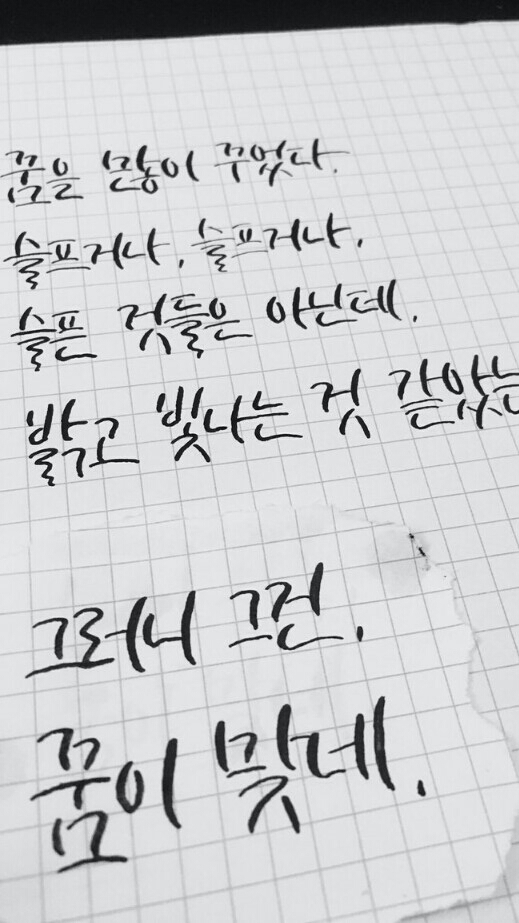 꿈을 많이 꾸었다.
슬프거나, 슬프거나,
슬픈 것들은 아닌데,
밝고 빛나는 것 같았는
그러니 그건,
꿈이 맞네.